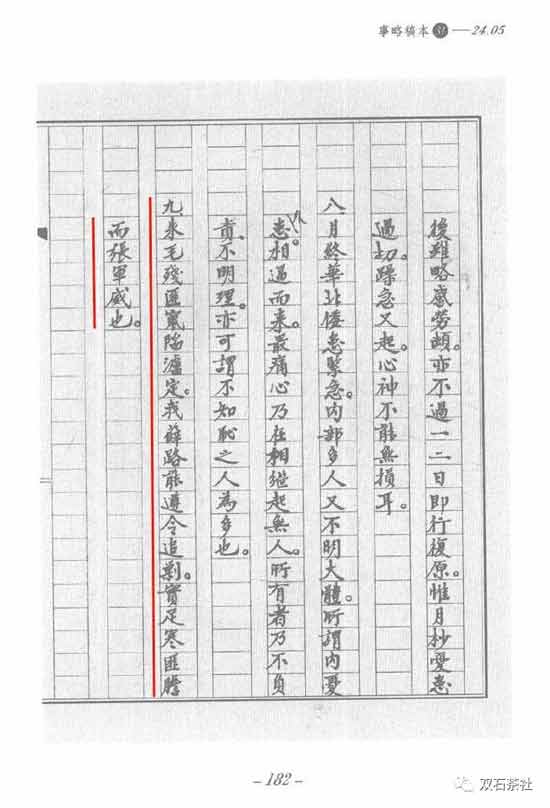 事略稿本㉛——24.05
後雖略感勞頓。亦不過一二日即行復原。惟月杪憂患
過切。躁急又起。心神不能無損耳。
八、月終華北倭患緊急。内部多人又不明大體。所謂内憂
外患相逼而來。最痛心乃在相繼起無人。所有者乃不負
責、不明理。亦可謂不知恥之人為多也。
九、朱毛殘匪竄陷瀘定。我薛路能遵令追剿。實足寒匪膽
而張軍威也。
-182-
双石茶社